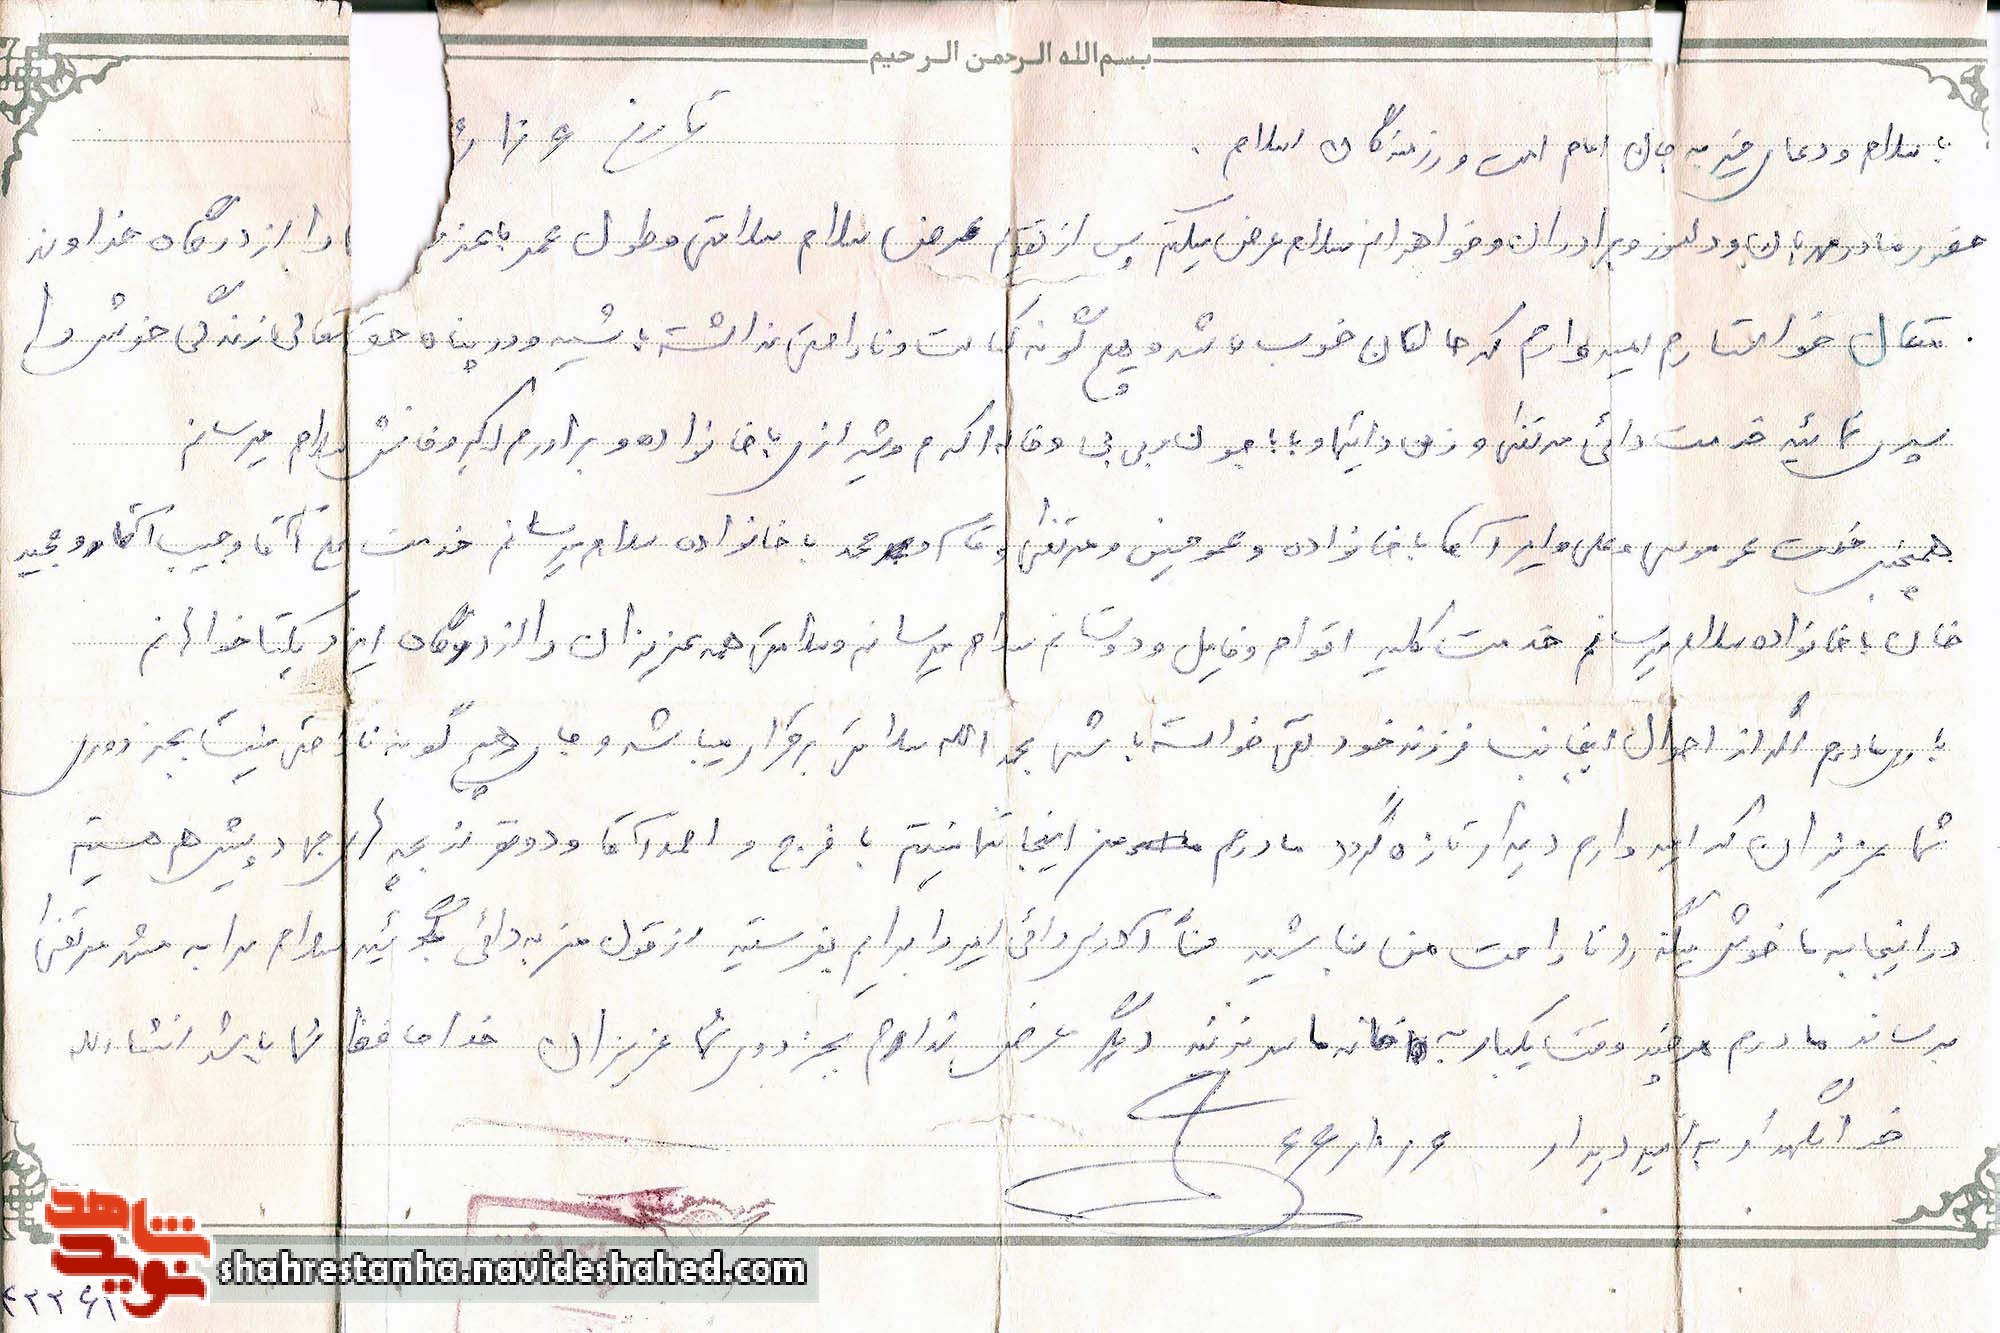 بسم الله الرحمن الرحیم
با سلام و دعای خیر به جان امام امت و رزمندگان اسلام . تاریخ
حضور مادر مهربان و دلسوز و برادران و خواهرانم سلام عرض میکنم پس از تقدیم عرض سلام سلامتی و طول عمر با عز را از درگاه خداوند
متعال خواستارم امیدوارم که حالتان خوب باشد و هیچ گونه کسالت و ناراحتی نداشته باشید و در پناه حق تعالی زندگی خوشی را
سپری نمائید خدمت دائی مرتضی و زن دائیها و بابا جون و بی بی و خاله اکرم و شیرازی با خانواده و برادرم اکبر و سلام میرسانم
همچنین خدمت عمو موسی و علی و با خانواده و عمو حسین و مرتضی و قاسم و محمد با خانواده سلام میرسانم خدمت آقا و حبیب آقا و مجید
خان با خانواده سلام میرسانم خدمت کلیه اقوام و فامیل و دوستانم سلام میرسانم و سلامتی همه عزیزان را از درگاه ایزد یکتا خواهانم
باری مادرم اگر از احوال اینجانب فرزند خود تقی خواسته باشید بحمد الله سلامتی برقرار میباشد و جای هیچ گونه ناراحتی نیست بجز دوری
شما عزیزان که امیدوارم دیدار تازه گردد مادرم من اینجا تنها نیستم با فرج و احمد آقا و دو نفر از بچه های پیش هم هستیم
در اینجا به ما خوش میگذرد و ناراحت من نباشید ضمناً آدرس دائی امیر را برایم بفرستید از قول من به دائی بگوئید سلام مرا به مشهد مرتضی
برساند مادرم هر چند وقت یکبار به خانه ما سر بزنند دیگر عرضی ندارم بجز دوری شما عزیزان خدا حافظ شما باشد انشاءالله
خدانگهدار به امید دیدار
shahrestanha.navideshahed.com
نوید شاهد